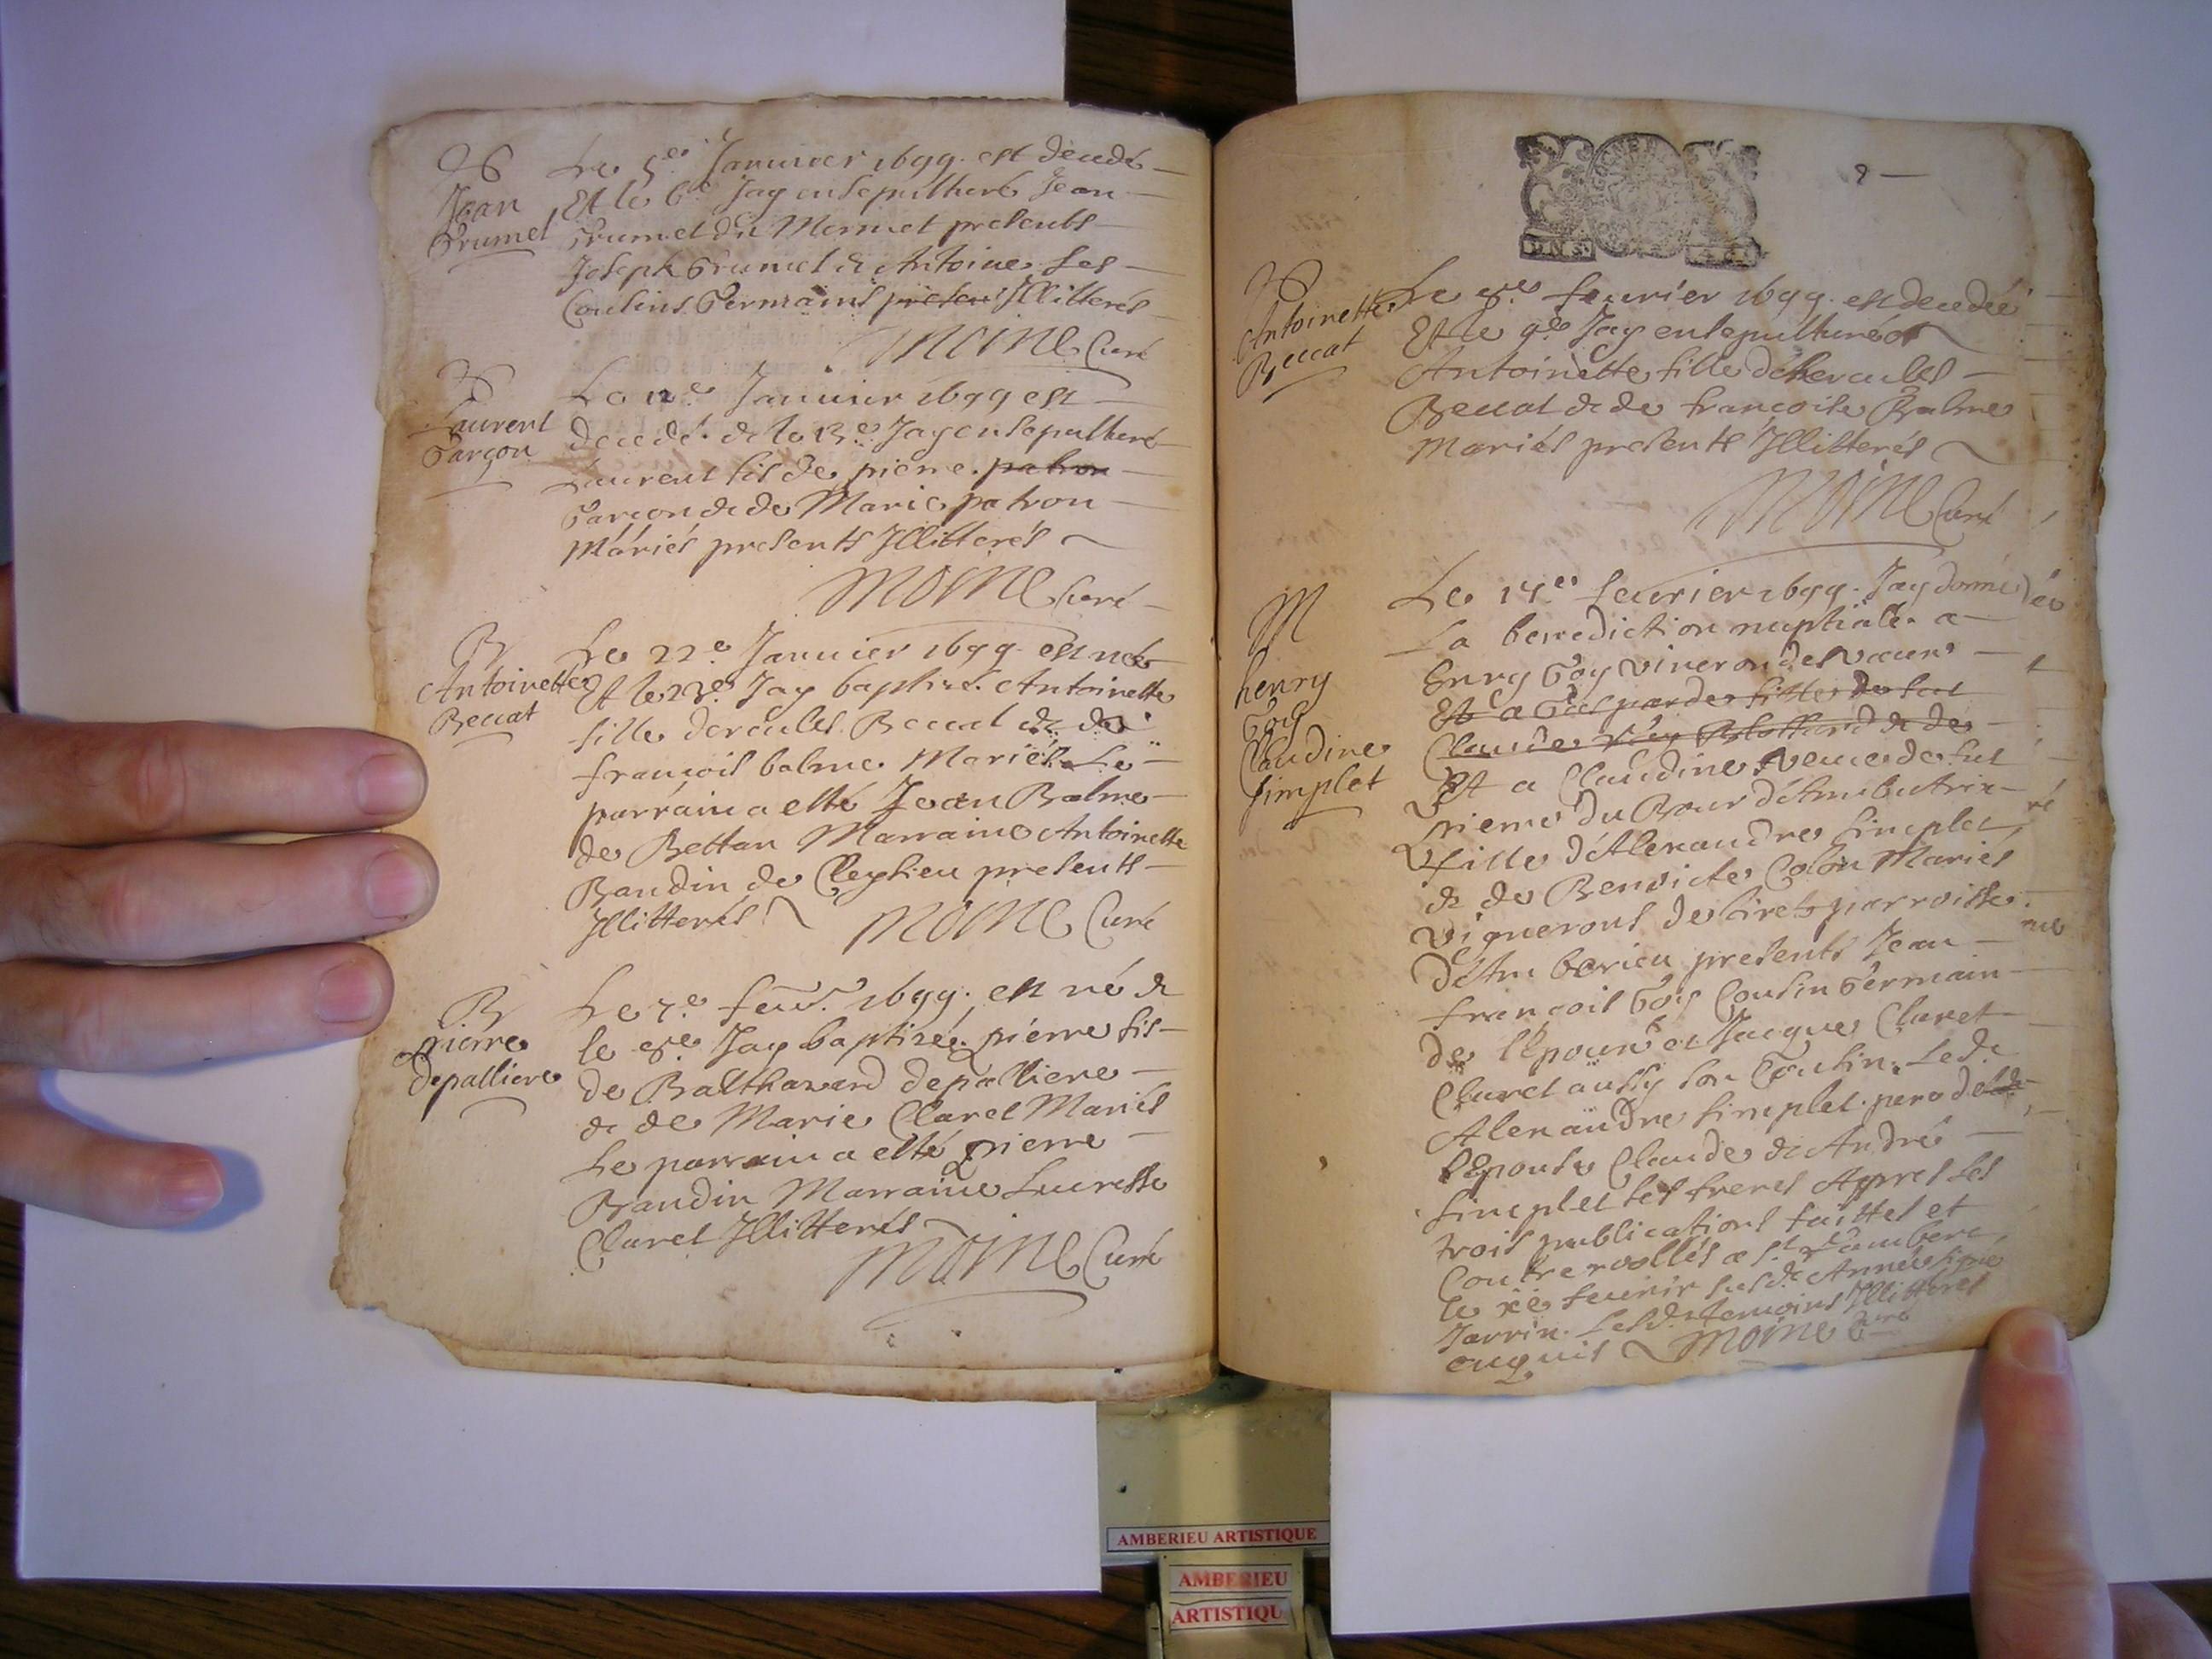 Jean
Grumel
Le 5e Januier 1699 est decedé
Et le 6e Jay ensepulturé Jean
Grumel du Mornet presents
Joseph Grumel & Antoine ses
Cousins Germains presens Illitterés
Moine Curé
Laurent
Garçon
Le 12e Januier 1699 est
decedé & le 13e Jay ensepulturé
Laurent fils de pierre patron
Garcon & de Marie patron
Mariés presents Illitterés
Moine Curé
B
Antoinette
Beccat
Le 22e Januier 1699 est née
Et le 23e Jay baptizé Antoinette
fille dercules Beccat & de
francois balme Mariés Le
parrain a esté Jean Balme
de Bettan Marraine Antoinette
Baudin de Cleyzieu presents
Illitterés Moine Curé
B
pierre
depalliere
Le 7e feur. 1699 est né &
le 8e Jay baptizé pierre fils
de Balthazard depalliere
& de Marie Claret Mariés
Le parrain a esté pierre
Baudin Marraine Lucresse
Claret Illitterés
Moine Curé
Antoinette
Beccat
Le 8e feurier 1699 est decedée
Et le 9e Jay ensepulturé
Antoinette fille dhercules
Beccat & de francoise Balme
Mariés presents Illitterés
Moine Curé
M
henry
Goy
Claudine
Simplet
Le 14e feurier 1699 Jay donné
La benediction nuptiale a
Enry Goy vineron de
Et a fille de feu
Claude & de
Et a Claudine veuue de fut
pierre du Bour d'Ambutrix
fille d'Alexandre Simplet
& de Benoite Colon Mariés
Vignerons de parroisse
d'Amberieu presents Jean
francois Goy Cousin Germain
de l'Epoux et Jacque Claret
Claret aussy son Cousin Led.
Alexandre Simplet pere de
l'Epouse Claude & André
Simplet ses freres Apres les
trois publications faittes et
Controrollés a St Rambert
le feurier susd. Année signé
Jarrin Lesd. temoins Illitterés
enquis Moine Curé
AMBERIEU ARTISTIQUE
AMBERIEU
ARTISTIQU